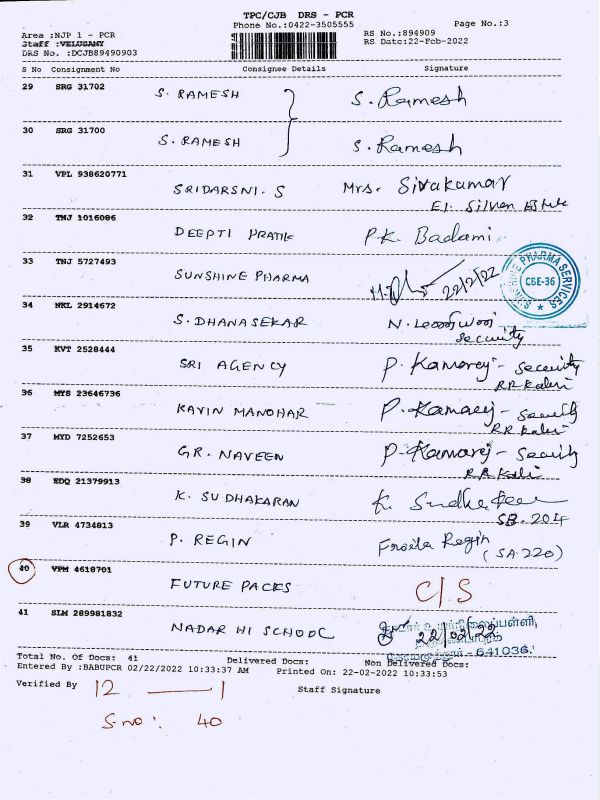 TPC/CJB DRS - PCR
Phone No.:0422-3505555
Page No.:3
Area :NJP 1 - PCR
RS No.:894909
Staff :VELUSAMY
RS Date:22-Feb-2022
DRS No. :DCJB89490903
S No Consignment No Consignee Details Signature
29 SRG 31702 S. RAMESH S. Ramesh
30 SRG 31700 S. RAMESH S. Ramesh
31 VPL 938620771 SRIDARSNI. S Mrs. Sivakumar
E1. Silver Estate
32 TNJ 1016086 DEEPTI PRATIK P.K. Badami
33 TNJ 5727493 SUNSHINE PHARMA 22/2/22
PHARMA SERVICES
CBE-36
34 NKL 2914672 S. DHANASEKAR N.
Security
35 KVT 2528444 SRI AGENCY P. Kamaraj - Security
36 MYS 23646736 KAVIN MANOHAR P. Kamaraj - Security
37 MYD 7252653 GR. NAVEEN P. Kamaraj - Security
38 EDQ 21379913 K. SUDHAKARAN K.
SB. 204
39 VLR 4734813 P. REGIN Regin (SA 220)
40 VPM 4618701 FUTURE PACKS C/S
41 SLM 289981832 NADAR HI SCHOOL 22/02/22
- 641036.
Total No. Of Docs: 41 Delivered Docs: Non Delivered Docs:
Entered By :BABUPCR 02/22/2022 10:33:37 AM Printed On: 22-02-2022 10:33:53
Verified By 12 — 1 Staff Signature
S.no: 40